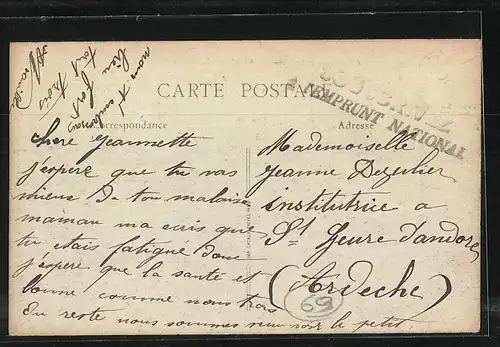 CARTE POSTALE
SOUSCRIVEZ
à l'EMPRUNT NATIONAL
Correspondance
Adresse
Chere Jeannette
j'espere que tu vas
mieux de ton malaise
maman ma ecris que
tu etais fatigue donc
j'espere que la santé est
bonne comme nous trois
Du reste nous sommes venu voir le petit
nous t'embrassons
bien fort
tout trois
Mademoiselle
Jeanne
institutrice a
St Jeure d'andore
(Ardeche)
69